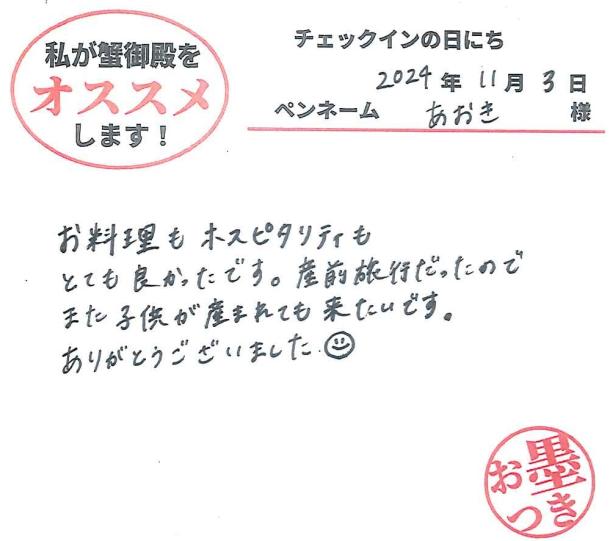 私が蟹御殿を
オススメ
します！
チェックインの日にち
2024年 11月 3日
ペンネーム あおき 様
お料理も ホスピタリティも
とても良かったです。産前旅行だったので
また子供が産まれても来たいです。
ありがとうございました
お墨
つき